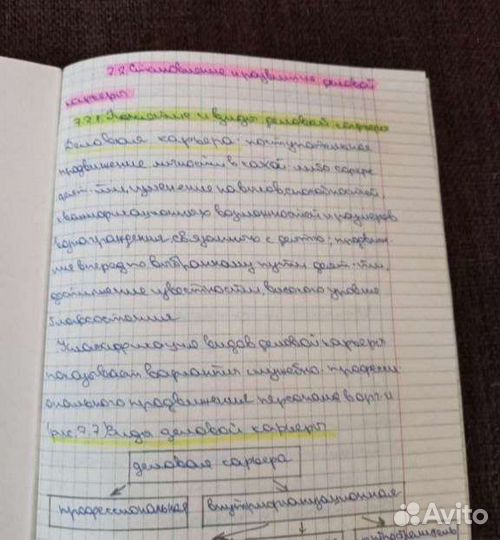 7.2 Становление и развитие деловой
карьеры
7.2.1 Понятие и виды деловой карьеры
Деловая карьера - поступательное
продвижение личности в какой-либо сфере
деят-ти, изменение навыков, способностей,
квалификационных возможностей и размеров
вознаграждения, связанного с деят-ю; продвиже-
ние вперед по выбранному пути деят-ти,
достижение известности, высокого уровня
благосостояния
Классификация видов деловой карьеры
показывает варианты служебно-професси
онального продвижения персонала в орг-и
(рис. 7.7) Виды деловой карьеры
деловая карьера
профессиональная внутриорганизационная
Avito